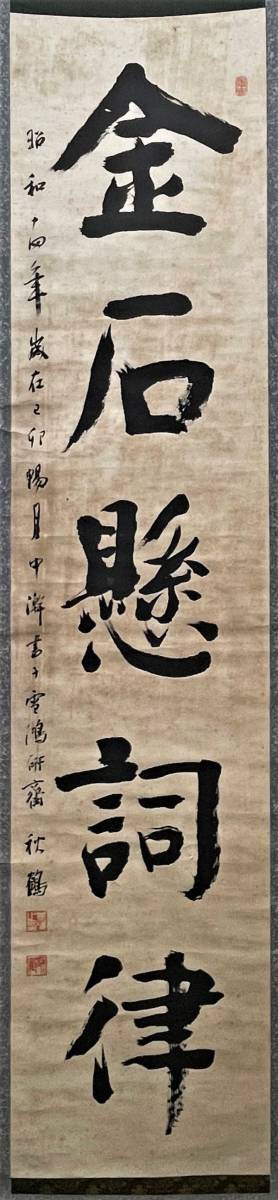 金石懸詞律
昭和十四年歳在己卯暢月中澣書于雪鴻研齋 秋鶴